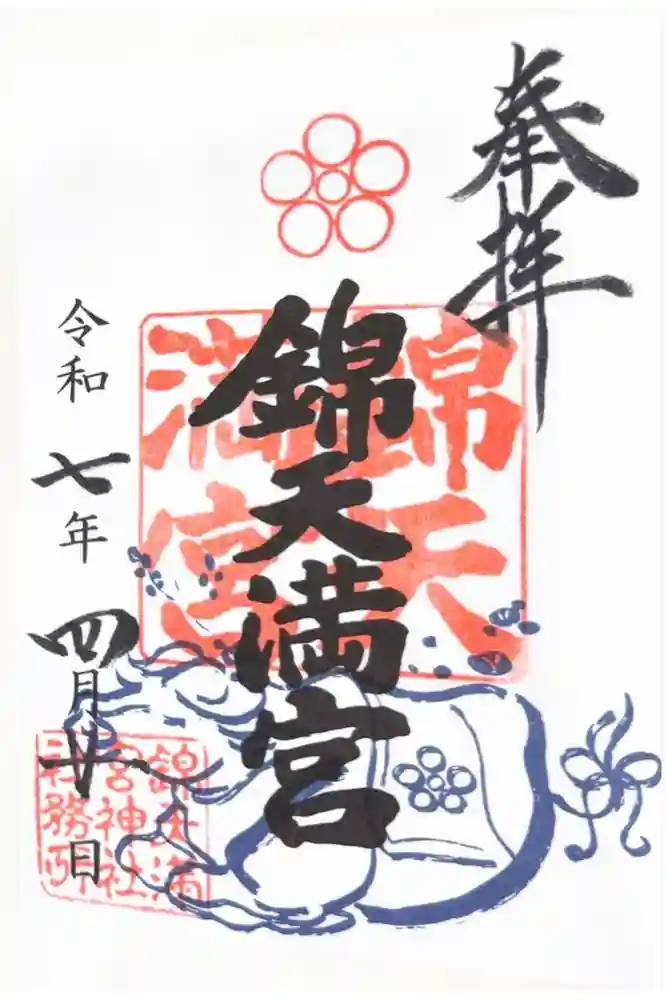 奉拝
錦天
満宮
錦天満宮
令和七年四月廿日
錦天満
宮神社
社務所